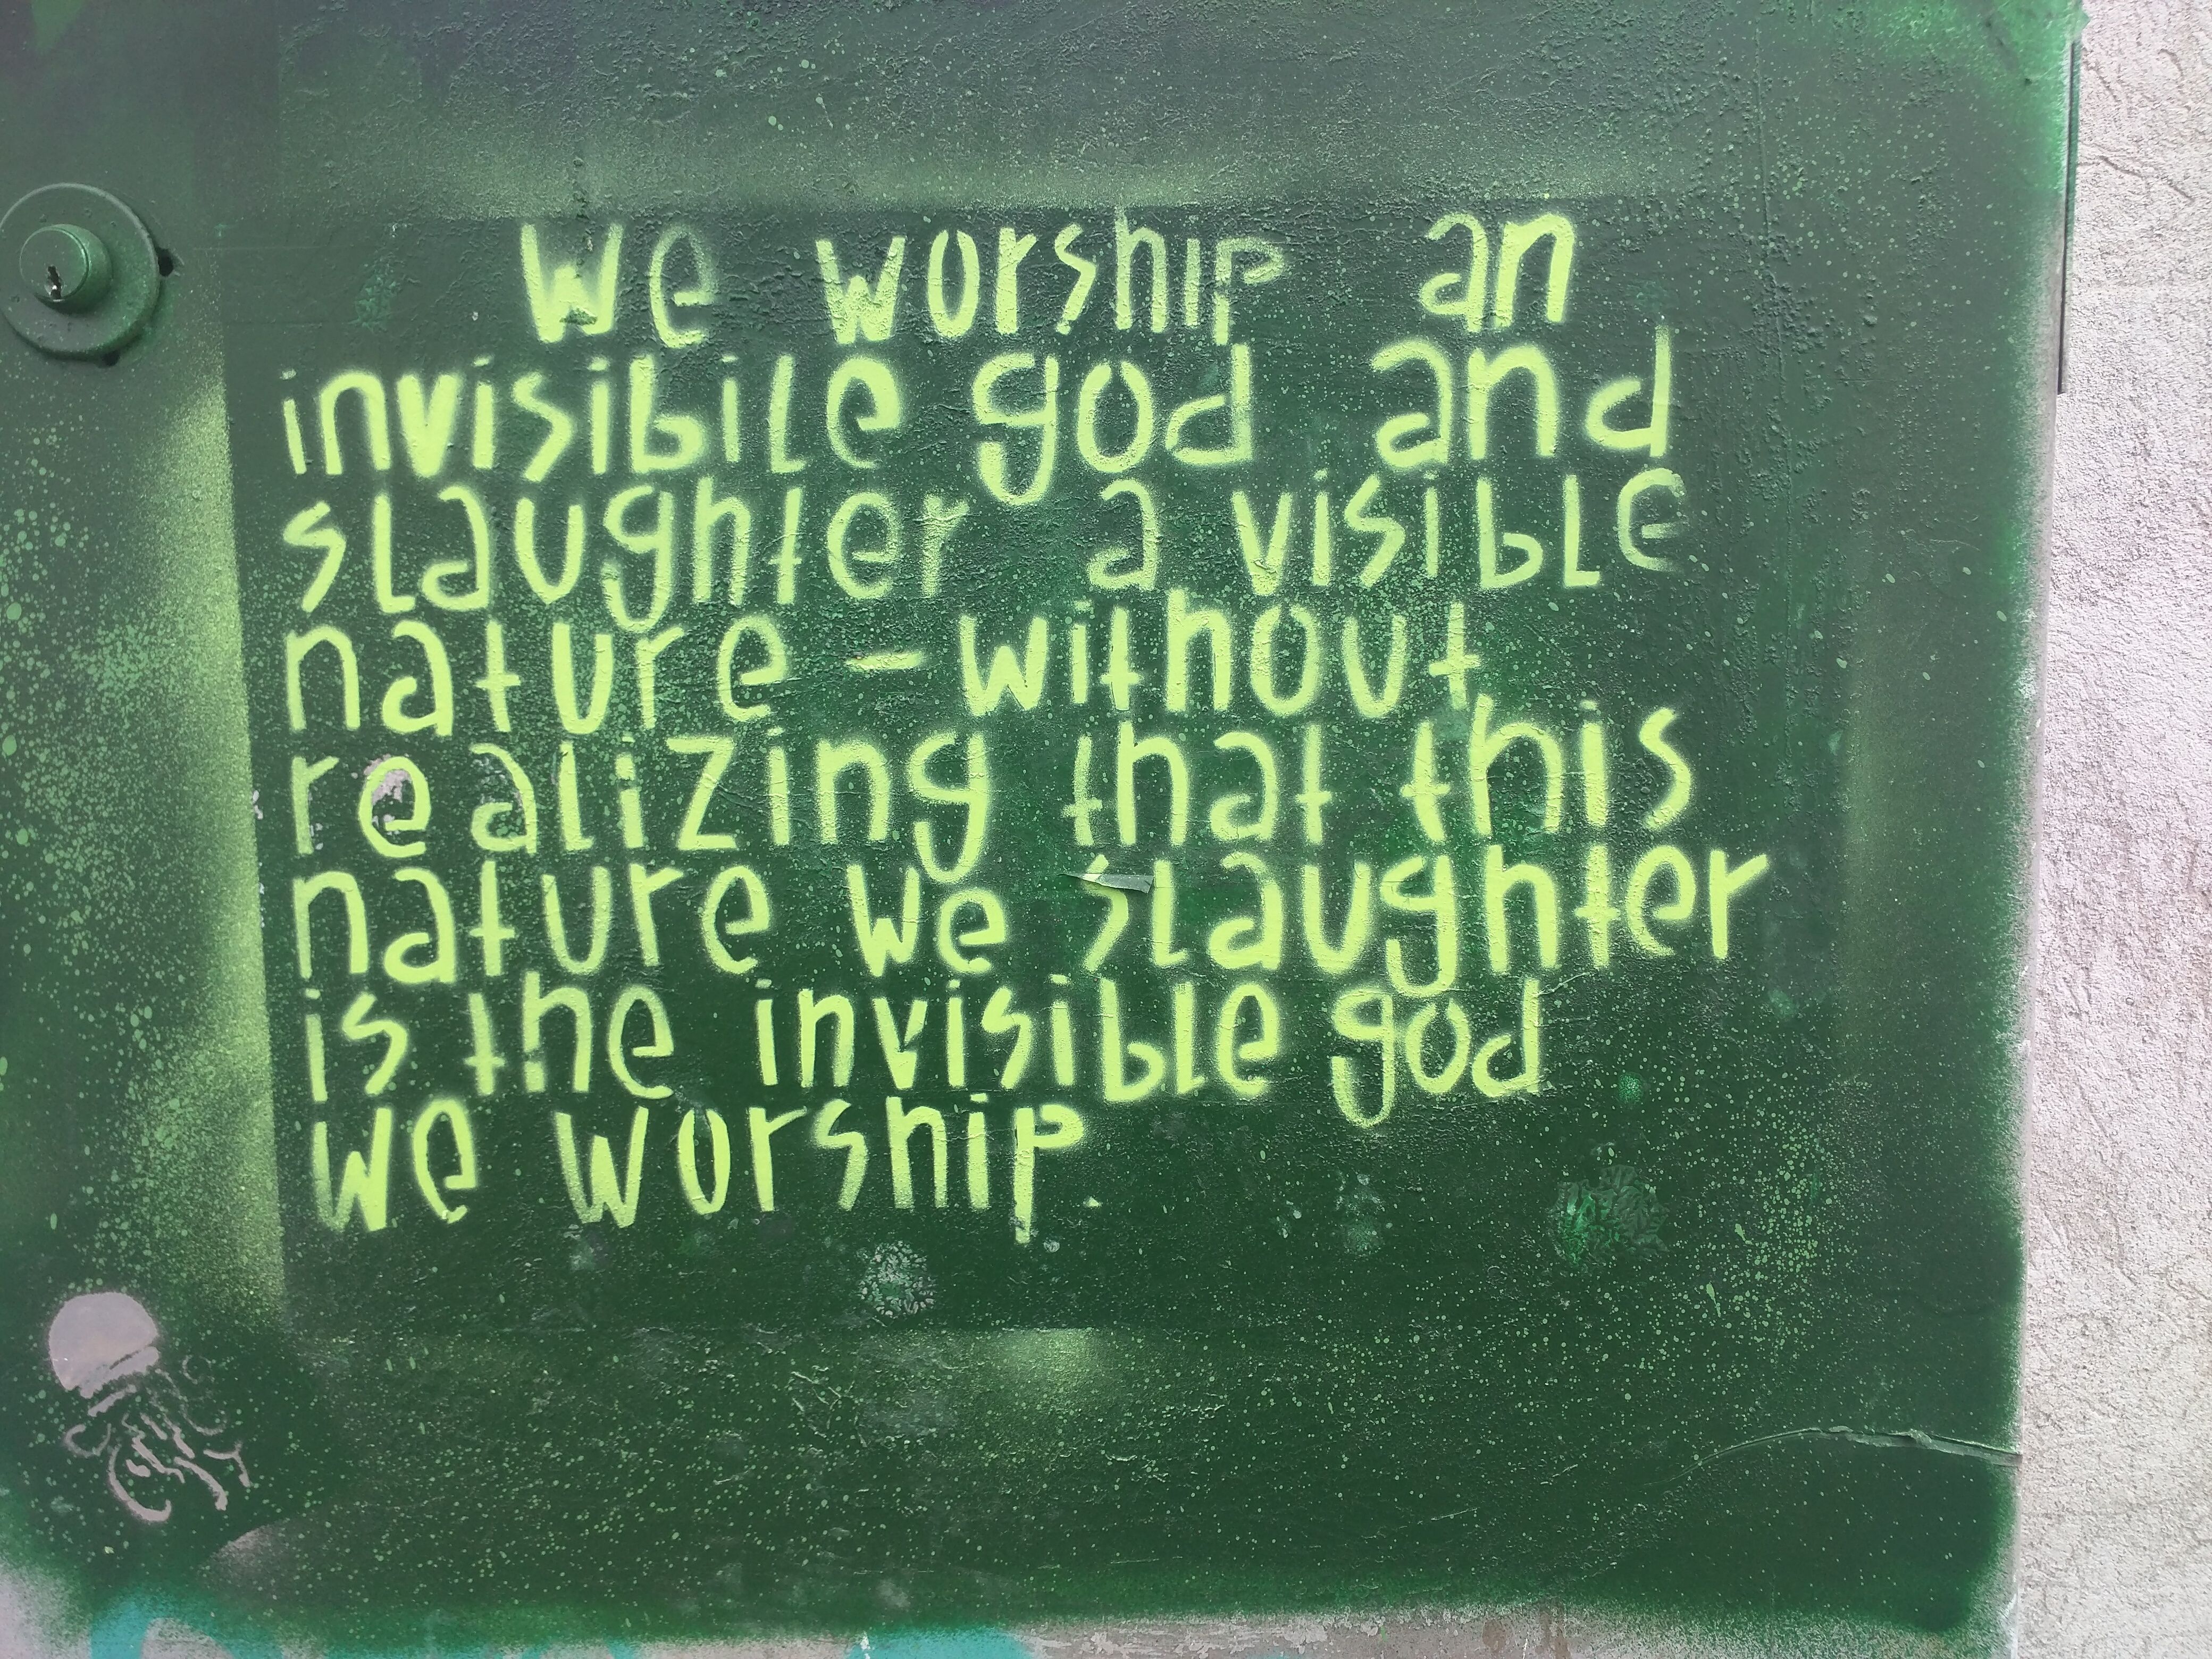 We worship an
invisibile god and
slaughter a visible
nature – without
realizing that this
nature we slaughter
is the invisible god
we worship.